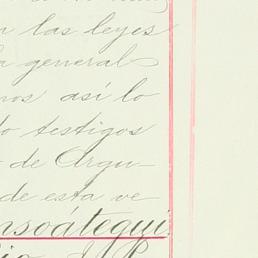 n las leyes
a general
nos así lo
to testigos
de Argu-
de esta ve
nsoátegui.